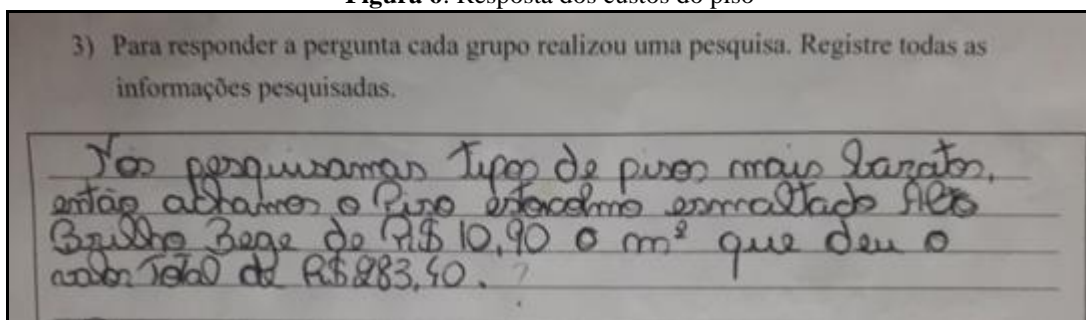 Figura 6: Resposta dos custos do piso
3) Para responder a pergunta cada grupo realizou uma pesquisa. Registre todas as
informações pesquisadas.
Nós pesquisamos Tipos de pisos mais baratos,
então achamos o Piso estocolmo esmaltado Alto
Brilho Bege de R$ 10,90 o m² que deu o
valor Total de R$ 283,40. ?